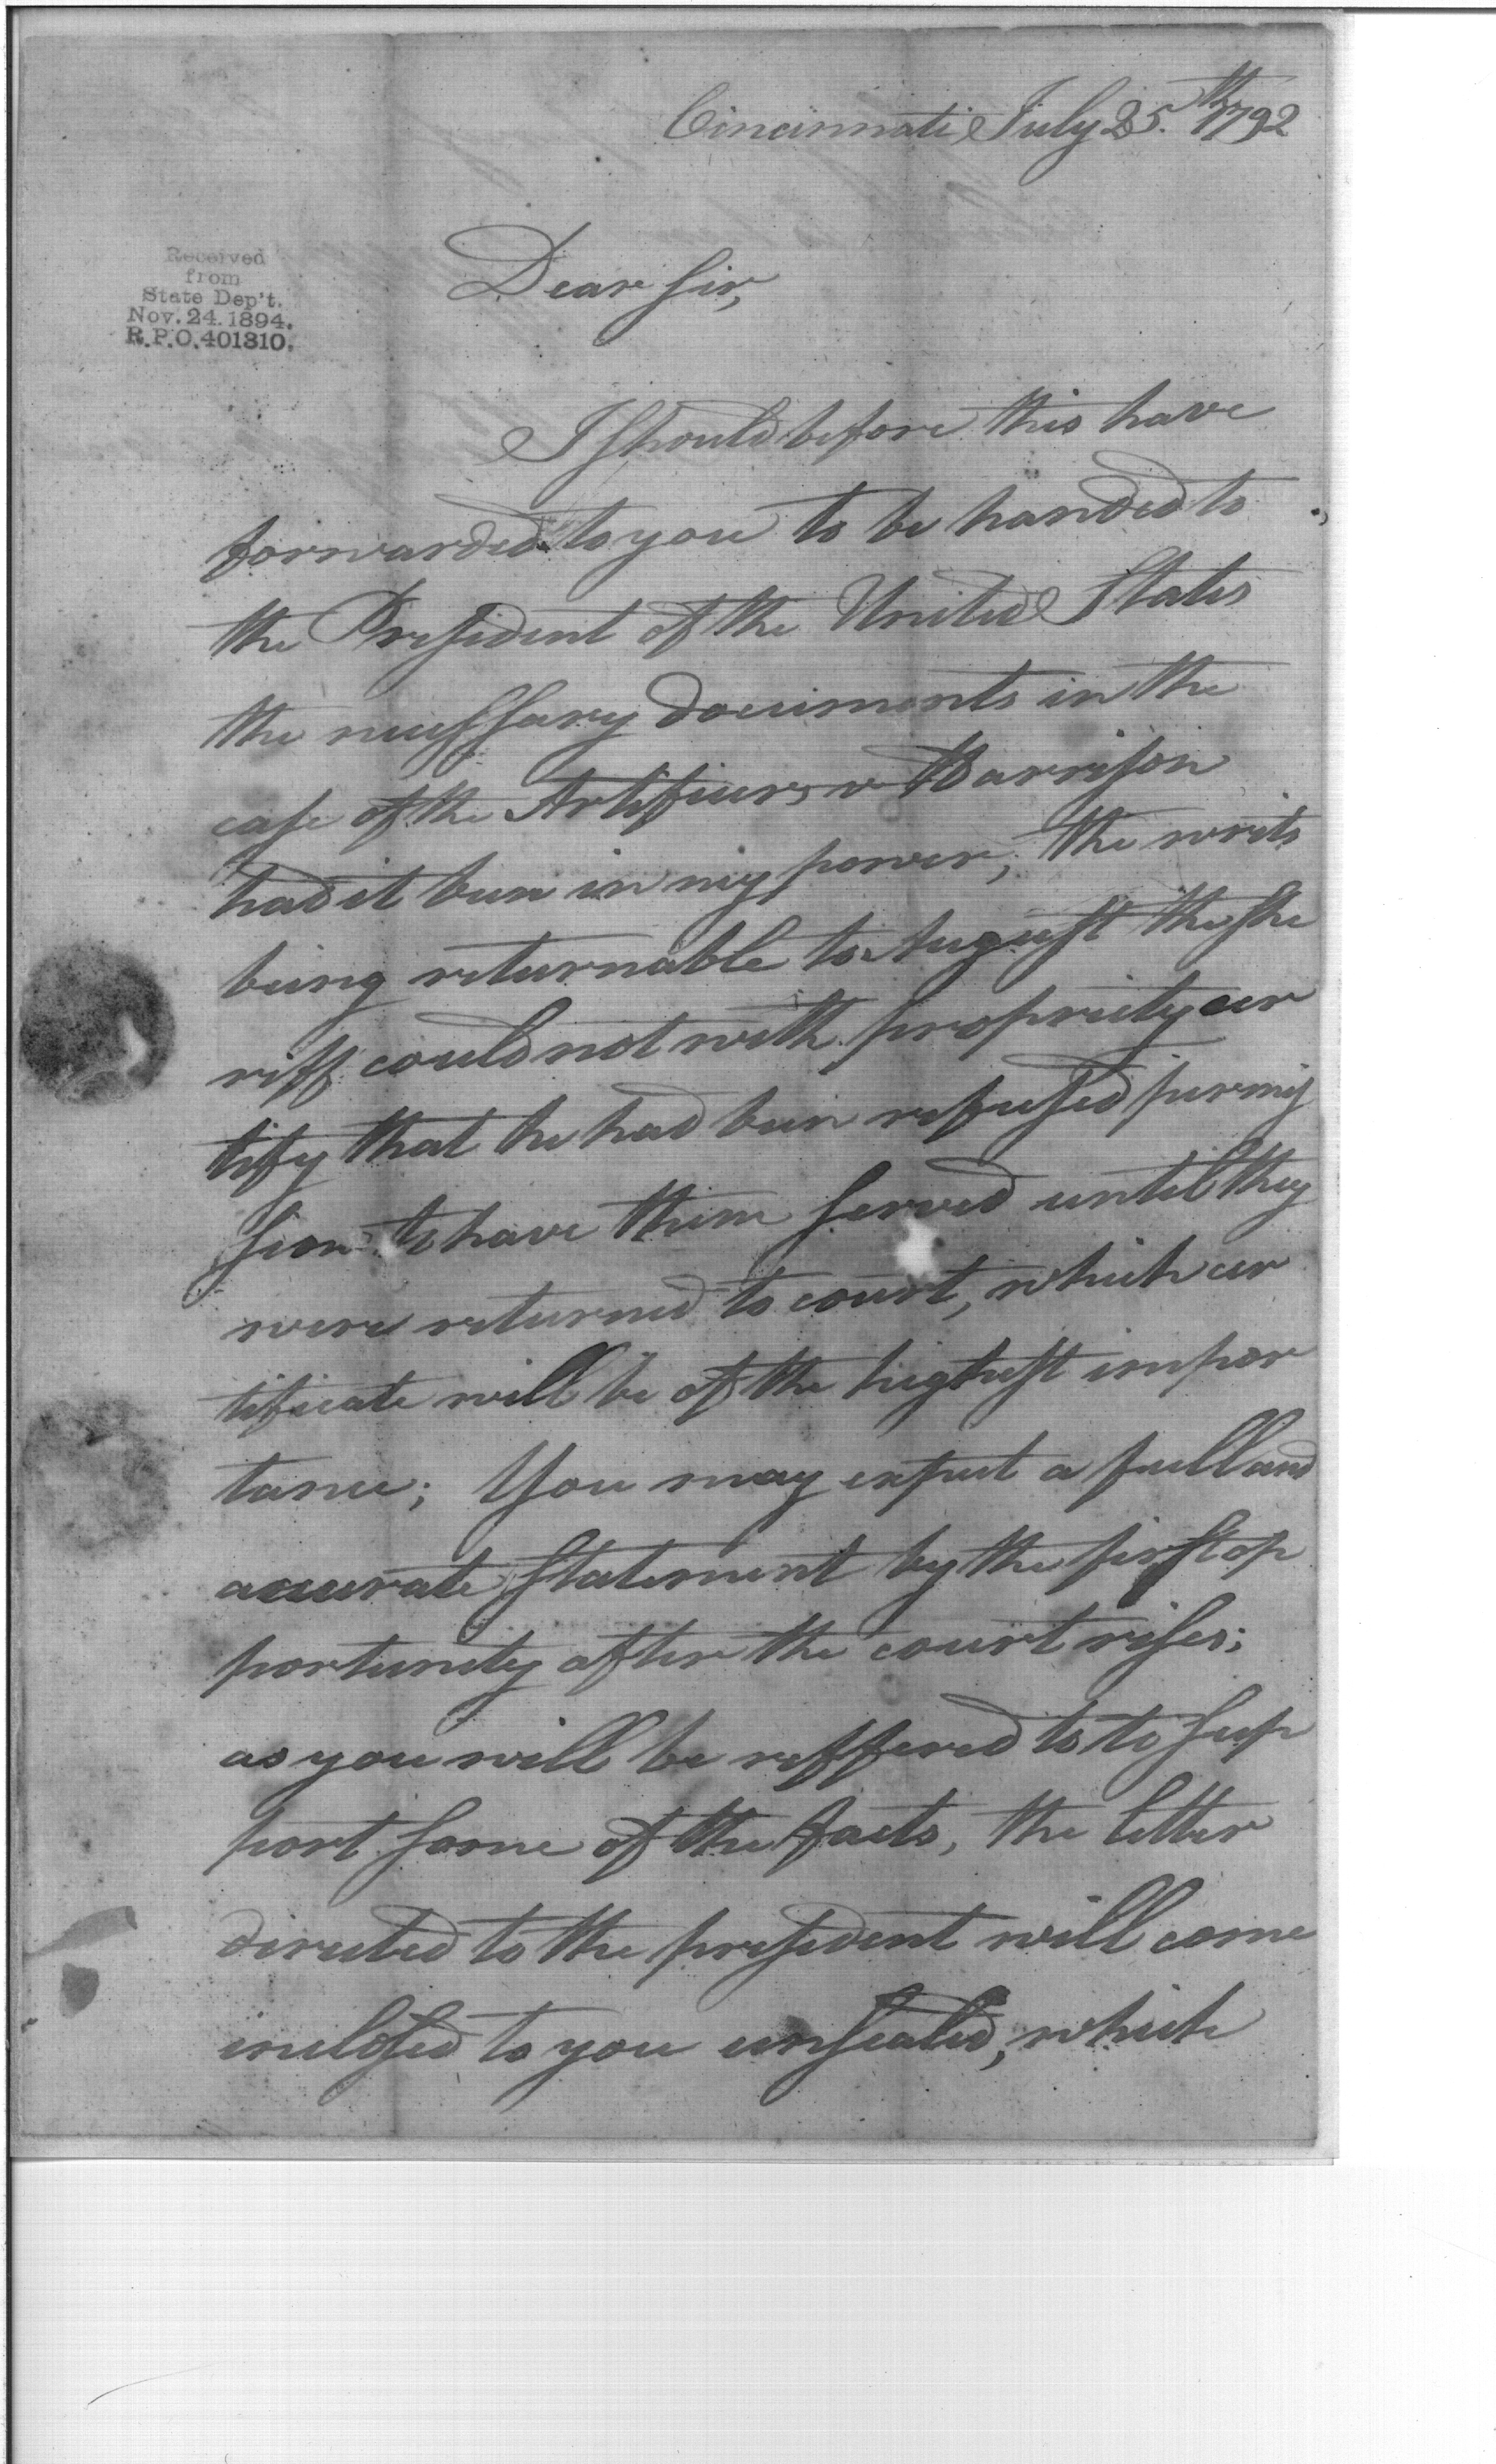 Cincinnati July 25.th 1792
Received
from
State Dep't.
Nov. 24. 1894.
R.P.O. 401310.
Dear Sir,
I should before this have
forwarded to you to be handed to
the President of the United States
the necessary documents in the
case of the Artificers v Harrison
had it been in my power; the writs
being returnable to August the she
riff could not with propriety cer
tify that he had been refused permis
sion to have them served until they
were returned to court, which cer
tificate will be of the highest impor
tance; You may expect a full and
accurate statement by the first op
portunity after the court rises;
as you will be reffered to to sup
port some of the facts, the letter
directed to the president will come
inclosed to you unsealed, which